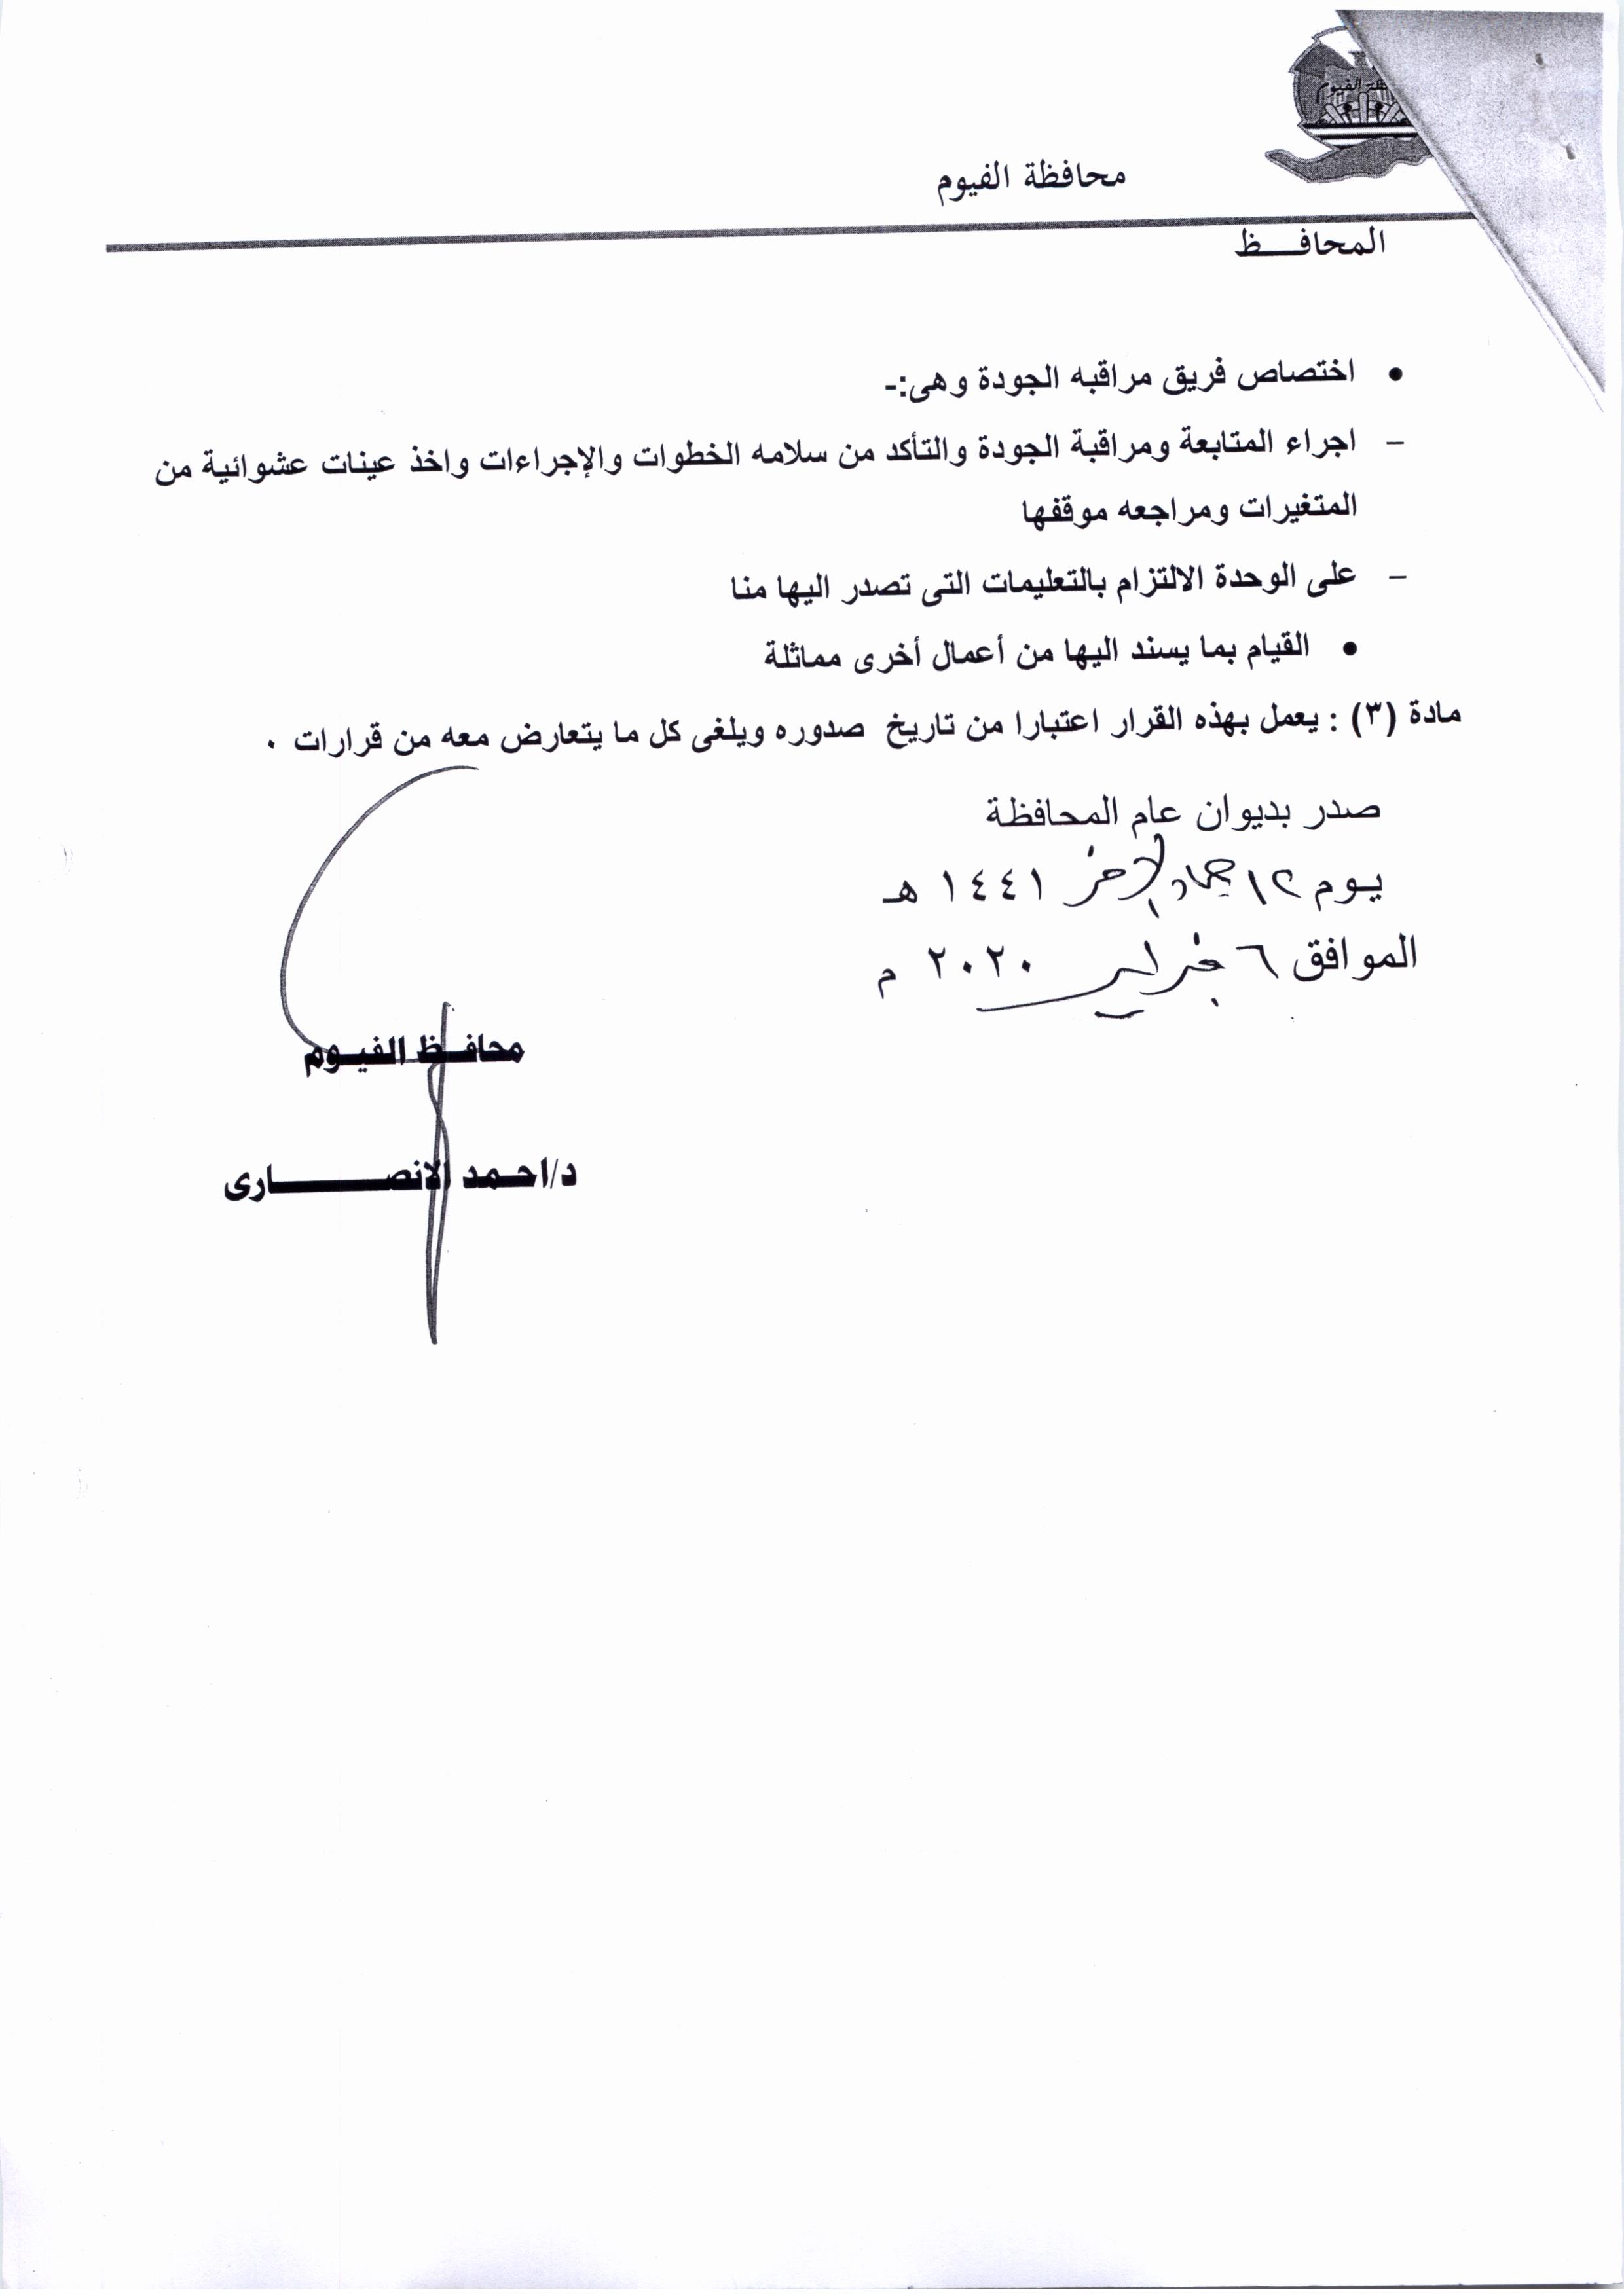 محافظة الفيوم
المحافـــظ
• اختصاص فريق مراقبه الجودة وهى:-
– اجراء المتابعة ومراقبة الجودة والتأكد من سلامه الخطوات والإجراءات واخذ عينات عشوائية من
المتغيرات ومراجعه موقفها
– على الوحدة الالتزام بالتعليمات التى تصدر اليها منا
• القيام بما يسند اليها من أعمال أخرى مماثلة
مادة (٣) : يعمل بهذه القرار اعتبارا من تاريخ صدوره ويلغى كل ما يتعارض معه من قرارات ٠
صدر بديوان عام المحافظة
يوم ١٢ جماد الاخر ١٤٤١ هـ
الموافق ٦ فبراير ٢٠٢٠ م
محافـظ الفيـوم
د/احـمد الانصـــــــارى